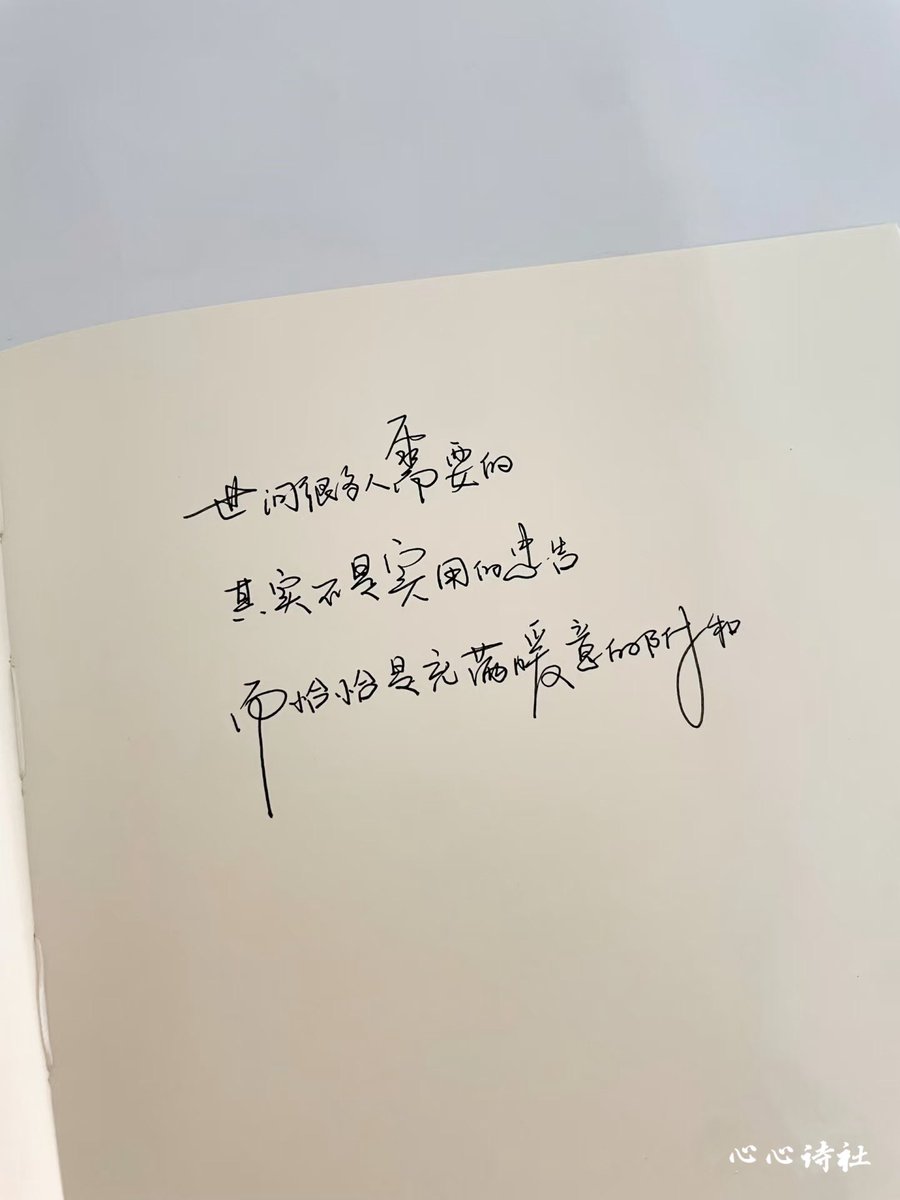 世间很多人需要的
其实不是实用的忠告
而恰恰是充满暖意的附和
心心诗社